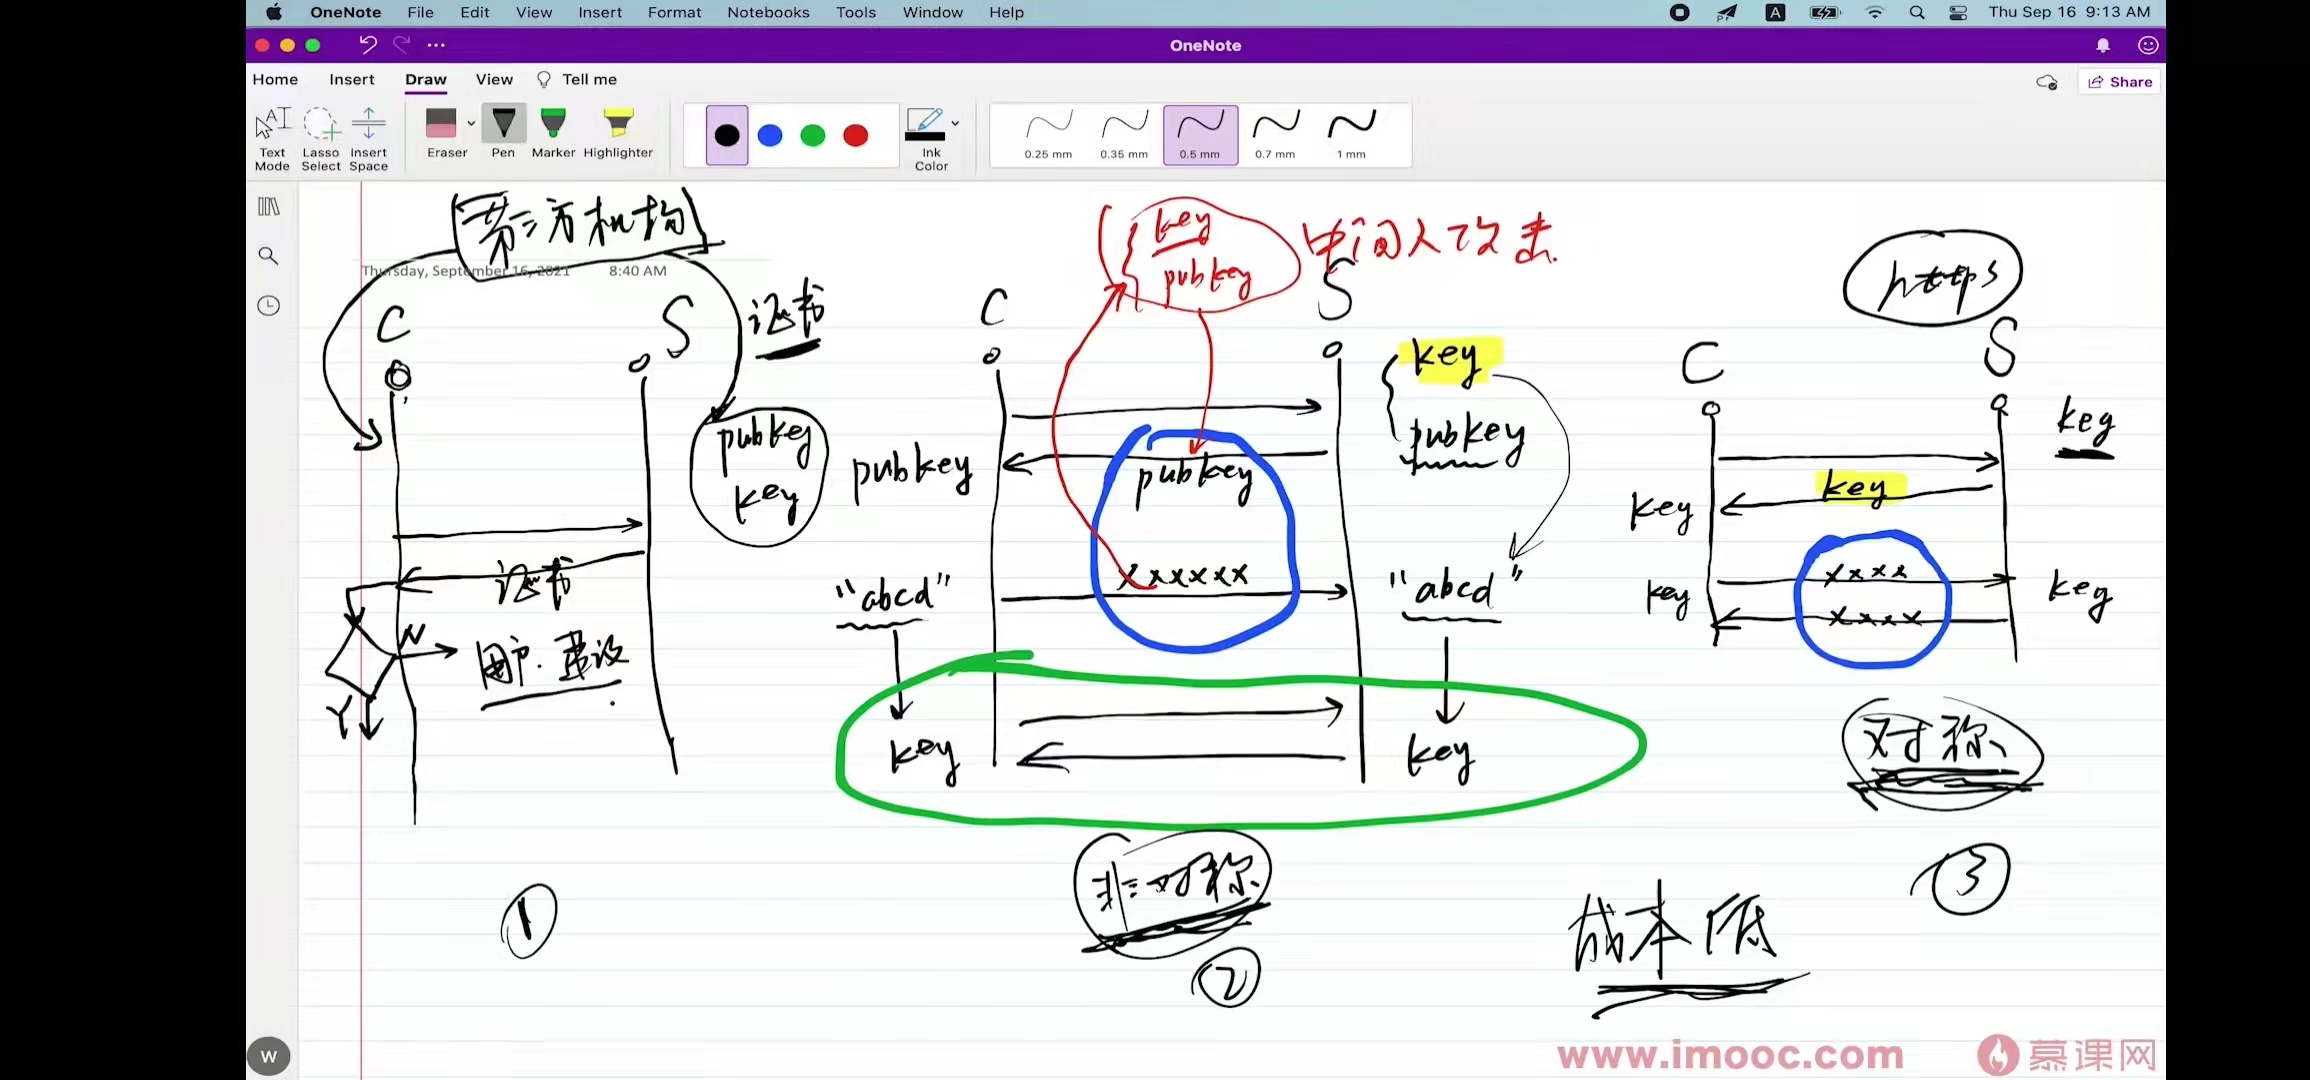 OneNote File Edit View Insert Format Notebooks Tools Window Help
A
Thu Sep 16 9:13 AM
OneNote
Home Insert Draw View Tell me
Share
Text Mode
Lasso Select
Insert Space
Eraser
Pen
Marker
Highlighter
Ink Color
0.25 mm
0.35 mm
0.5 mm
0.7 mm
1 mm
第三方机构
Thursday, September 16, 2021 8:40 AM
C
S
证书
pubkey
key
证书
N
Y
用户.
①
key
pubkey
中间人攻击
C
S
key
pubkey
pubkey
pubkey
xxxxxx
"abcd"
"abcd"
key
key
非对称
②
https
C
S
key
key
key
xxxx
key
key
xxxx
对称
③
成本低
W
www.imooc.com
慕课网